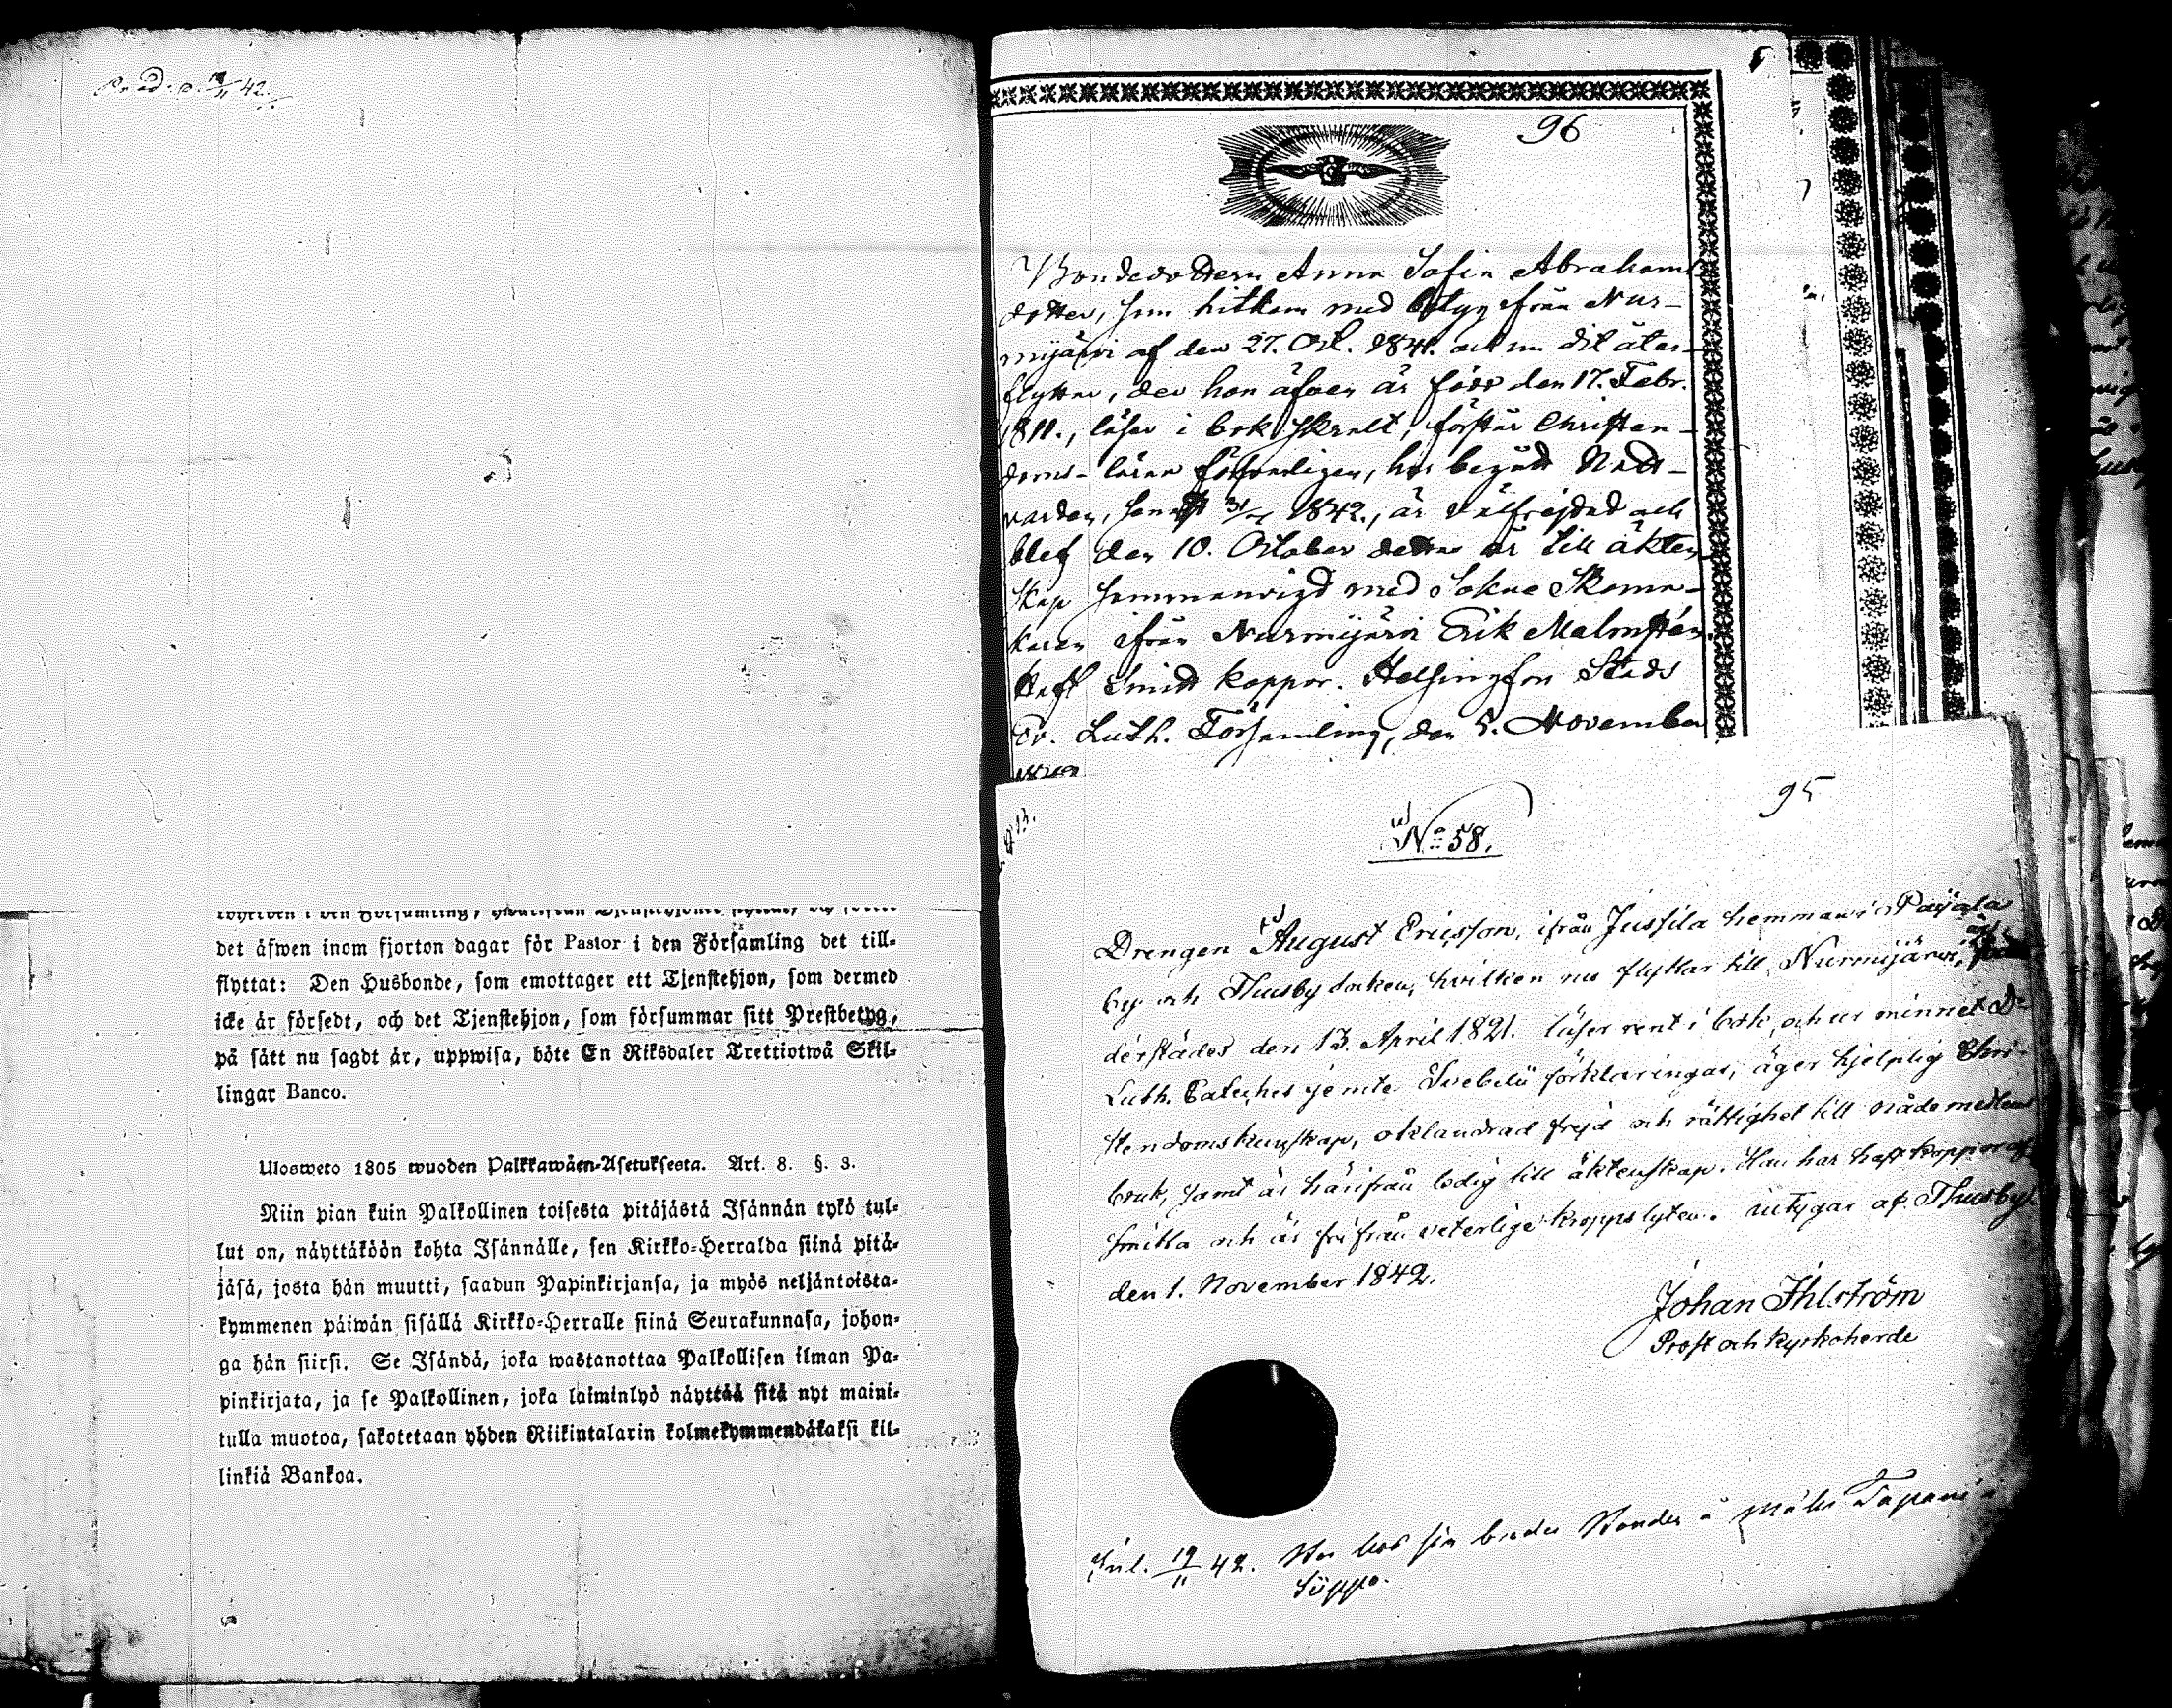 19/11 42.
det åfwen inom fjorton dagar för Pastor i den Församling det till-
flyttat: Den Husbonde, som emottager ett Tjenstehjon, som dermed
icke är försedt, och det Tjenstehjon, som försummar sitt Prestbetyg,
på sätt nu sagdt är, uppwisa, böte En Riksdaler Trettiotwå Skil-
lingar Banco.
Ulosweto 1805 wuoden Palkkawäen-Asetuksesta. Art. 8. §. 3.
Niin pian kuin Palkollinen toisesta pitäjästä Isännän tykö tul-
lut on, näyttäköön kohta Isännälle, sen Kirkko-Herralda siinä pitä-
jäsä, josta hän muutti, saadun Papinkirjansa, ja myös neljäntoista-
kymmenen päiwän sisällä Kirkko-Herralle siinä Seurakunnasa, johon-
ga hän siirsi. Se Isändä, joka wastanottaa Palkollisen ilman Pa-
pinkirjata, ja se Palkollinen, joka laiminlyö näyttää sitä nyt maini-
tulla muotoa, sakotetaan yhden Riikintalarin kolmekymmendäkaksi kil-
linkiä Bankoa.
96
Bondedottern Anna Sofia Abrahams-
dotter, som hitkom med betyg från Nur-
mijärvi af den 27. Oct. 1841. och nu dit åter-
flyttar, der hon äfven är född den 17. Febr.
1811., läser i bok skralt, förstår Christen-
doms-läran försvarligen, har begått Natt-
varden, senast 1842., är välfrejdad och
blef den 10. October detta år till äkten-
skap sammanvigd med Sokne Skoma-
karen ifrån Nurmijärvi Erik Malmstén.
Haft Smitt koppor. Helsingfors Stads
Ev. Luth. Församling, den 5. November
95
No 58.
Drengen August Ericsson, ifrån Jussila hemman i Paijala
by och Thusby socken, hvilken nu flyttar till Nurmijärvi, är
derstädes den 13. April 1821. läser rent i bok, och ur minnet Dr
Luth. Cateches jemte Svebelii förklaringar, äger hjelplig Chri-
stendomskunskap, oklandrad frejd och rättighet till nådemedlens
bruk, samt är härifrån ledig till äktenskap. Han har haft koppor af
smitta och är fri från veterlige kroppslyten. intygar af Thusby
den 1. November 1842.
Johan Ihlström
Prost och Kyrkoherde
Inl. 19/11 42. hos sin broder å Mäki Tapani